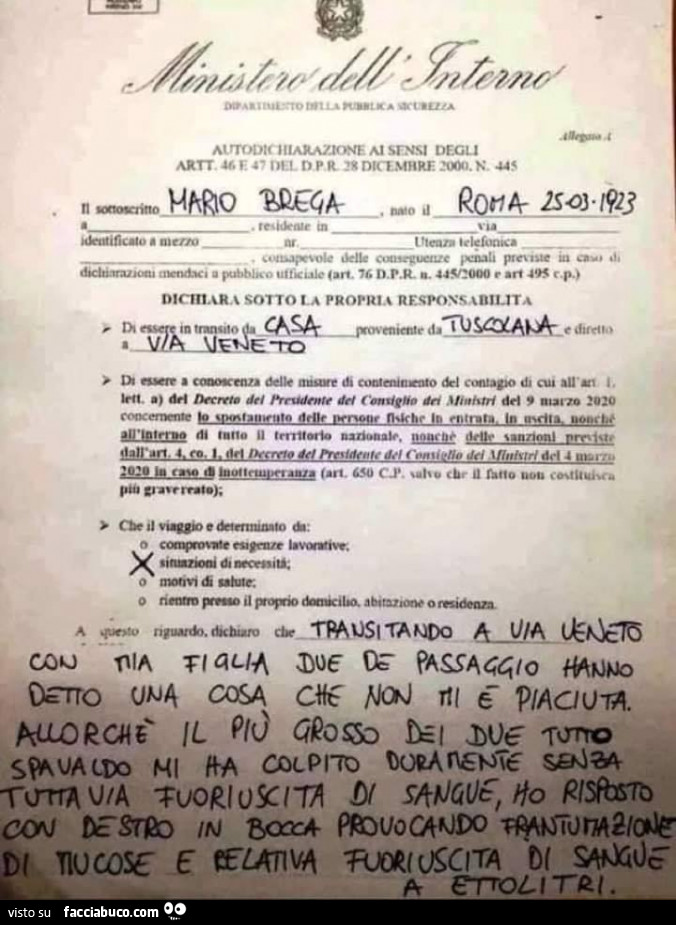 Ministero dell'Interno
DIPARTIMENTO DELLA PUBBLICA SICUREZZA
Allegato A
AUTODICHIARAZIONE AI SENSI DEGLI
ARTT. 46 E 47 DEL D.P.R. 28 DICEMBRE 2000, N. 445
Il sottoscritto MARIO BREGA, nato il ROMA 25-03-1923
a , residente in via
identificato a mezzo nr. Utenza telefonica
, consapevole delle conseguenze penali previste in caso di
dichiarazioni mendaci a pubblico ufficiale (art. 76 D.P.R. n. 445/2000 e art 495 c.p.)
DICHIARA SOTTO LA PROPRIA RESPONSABILITA
➤ Di essere in transito da CASA proveniente da TUSCOLANA e diretto
a VIA VENETO
➤ Di essere a conoscenza delle misure di contenimento del contagio di cui all'art. 1,
lett. a) del Decreto del Presidente del Consiglio dei Ministri del 9 marzo 2020
concernente lo spostamento delle persone fisiche in entrata, in uscita, nonché
all'interno di tutto il territorio nazionale, nonchè delle sanzioni previste
dall'art. 4, co. 1, del Decreto del Presidente del Consiglio dei Ministri del 4 marzo
2020 in caso di inottemperanza (art. 650 C.P. salvo che il fatto non costituisca
più grave reato);
➤ Che il viaggio e determinato da:
o comprovate esigenze lavorative;
X situazioni di necessità;
o motivi di salute;
o rientro presso il proprio domicilio, abitazione o residenza.
A questo riguardo, dichiaro che TRANSITANDO A VIA VENETO
CON MIA FIGLIA DUE DE PASSAGGIO HANNO
DETTO UNA COSA CHE NON MI È PIACIUTA.
ALLORCHÈ IL PIÙ GROSSO DEI DUE TUTTO
SPAVALDO MI HA COLPITO DURAMENTE SENZA
TUTTAVIA FUORIUSCITA DI SANGUE, HO RISPOSTO
CON DESTRO IN BOCCA PROVOCANDO FRANTUMAZIONE
DI MUCOSE E RELATIVA FUORIUSCITA DI SANGUE
A ETTOLITRI.
visto su facciabuco.com